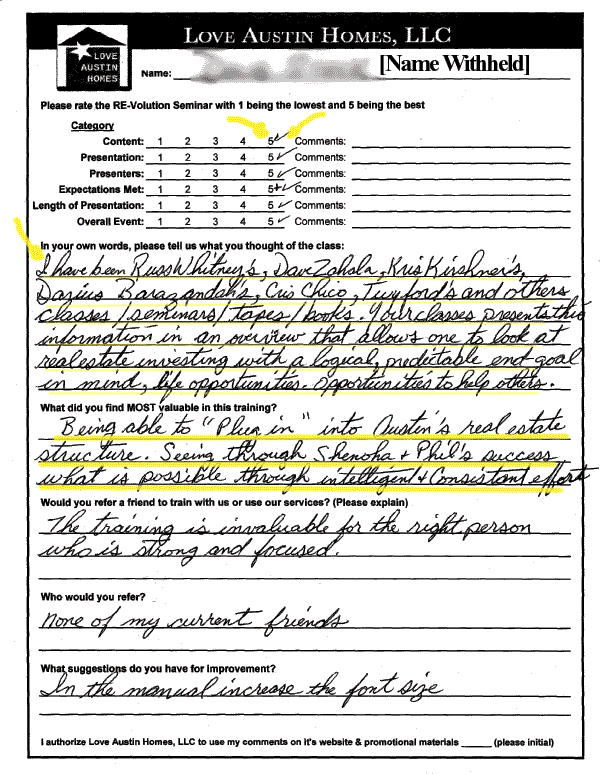 LOVE AUSTIN HOMES, LLC
LOVE
AUSTIN
HOMES
Name: [Name Withheld]
Please rate the RE-Volution Seminar with 1 being the lowest and 5 being the best
Category
Content: 1 2 3 4 5✓ Comments:
Presentation: 1 2 3 4 5✓ Comments:
Presenters: 1 2 3 4 5✓ Comments:
Expectations Met: 1 2 3 4 5+✓ Comments:
Length of Presentation: 1 2 3 4 5✓ Comments:
Overall Event: 1 2 3 4 5✓ Comments:
In your own words, please tell us what you thought of the class:
I have been Russ Whitney's, Dave Zohala, Kris Kirshner's,
Darius Barazandah's, Cris Chico, Twyford's and others
classes/seminars/tapes/books. Your classes presents this
information in an overview that allows one to look at
real estate investing with a logical, predictable end goal
in mind, life opportunities. Opportunities to help others.
What did you find MOST valuable in this training?
Being able to "Plug in" into Austin's real estate
structure. Seeing through Shenoha + Phil's success
what is possible through intelligent & Consistant effort
Would you refer a friend to train with us or use our services? (Please explain)
The training is invaluable for the right person
who is strong and focused.
Who would you refer?
None of my current friends
What suggestions do you have for improvement?
In the manual increase the font size
I authorize Love Austin Homes, LLC to use my comments on it's website & promotional materials ______ (please initial)